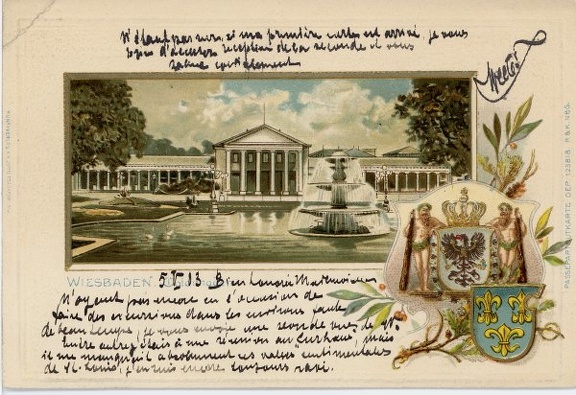 N'étant pas sûre, si ma première carte est arrivée, je vous
prie d'accuser réception de la seconde et vous
salue cordialement
WIESBADEN.
5 13 Bien honorée Mademoiselle
N'ayant pas encore eu l'occasion de
faire des excursions dans les environs faute
de beau temps, je vous envoie une seconde vue de W.
autre j'étais à une réunion au Curhaus, mais
il me manquait absolument ces valses sentimentales
de St. Louis, j'en suis encore toujours ravi.
PASSEPARTOUTKARTE DEP. 12381/8 R & K. No 5.